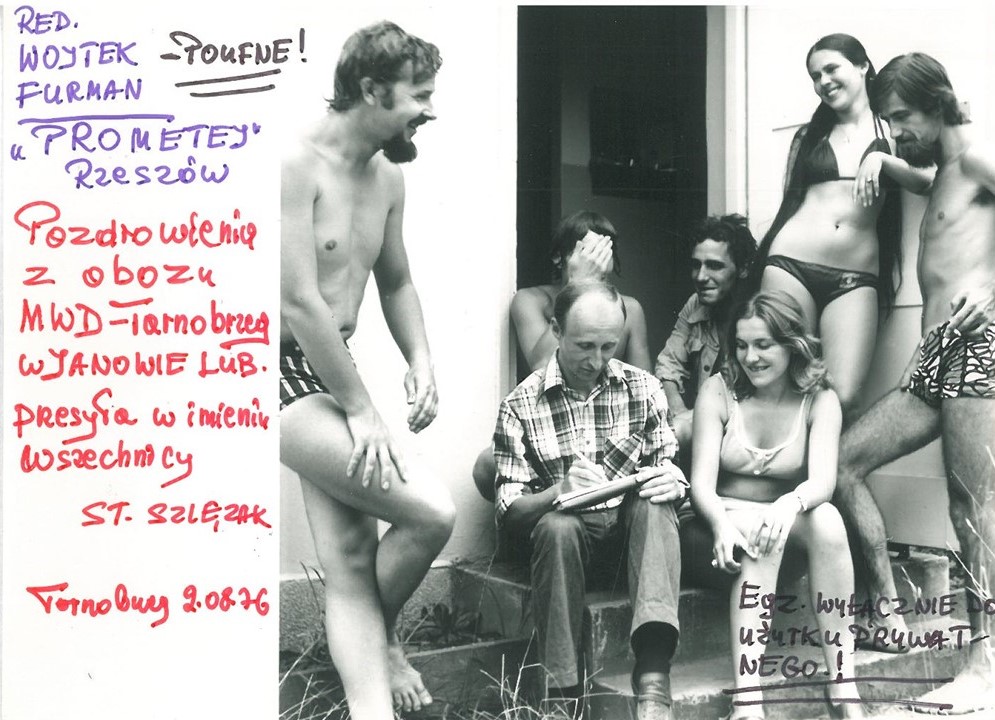 RED.
WOJTEK
FURMAN
–POUFNE!
„PROMETEJ"
Rzeszów
Pozdrowienia
z obozu
MWD–Tarnobrzeg
W JANOWIE LUB.
przesyła w imieniu
Wszechnicy
ST. SZLĘZAK
Tarnobrzeg 2.08.76
Egz. WYŁĄCZNIE DO
UŻYTKU PRYWAT–
NEGO.!